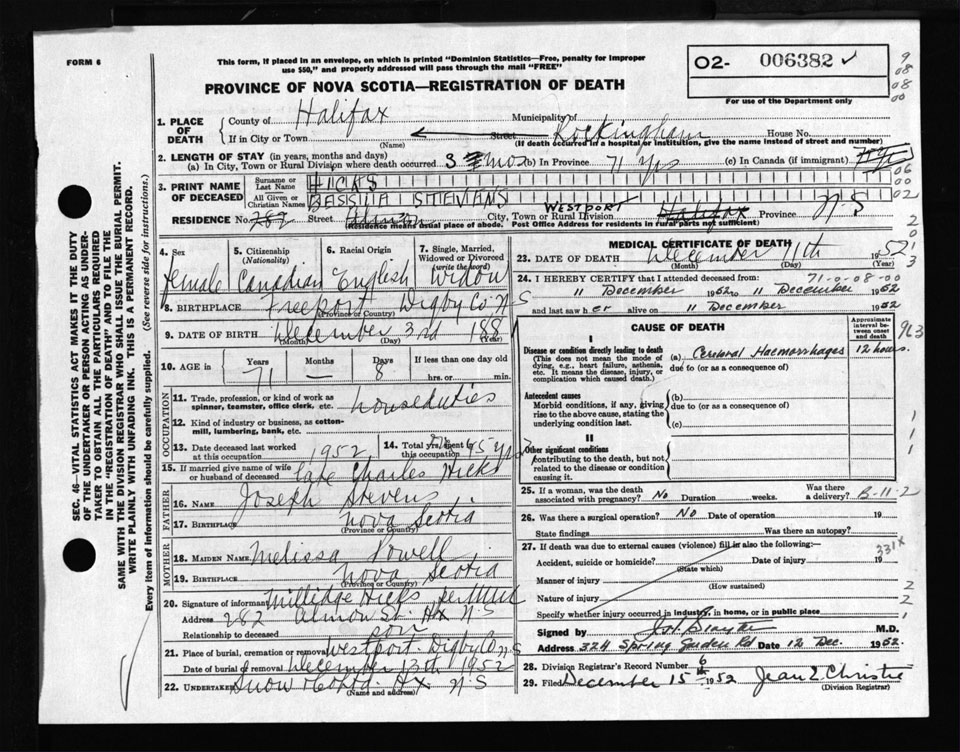 FORM 6
This form, if placed in an envelope, on which is printed "Dominion Statistics—Free, penalty for improper
use $50," and properly addressed will pass through the mail "FREE"
PROVINCE OF NOVA SCOTIA—REGISTRATION OF DEATH
O2- 006382
For use of the Department only
1. PLACE OF DEATH
County of Halifax Municipality of
If in City or Town Street Rockingham House No.
(Name) (If death occurred in a hospital or institution, give the name instead of street and number)
2. LENGTH OF STAY (in years, months and days)
(a) In City, Town or Rural Division where death occurred 3 mos (b) In Province 71 yrs (c) In Canada (if immigrant)
3. PRINT NAME OF DECEASED
Surname or Last Name HICKS
All Given or Christian Names BESSIA STEVANS
RESIDENCE No. 282 Street Almon City, Town or Rural Division WESTPORT Halifax Province N.S
(Residence means usual place of abode. Post Office Address for residents in rural parts not sufficient)
4. Sex female
5. Citizenship (Nationality) Canadian
6. Racial Origin English
7. Single, Married, Widowed or Divorced (write the word) Widow
8. BIRTHPLACE Freeport Digby Co. N S
(Province or Country)
9. DATE OF BIRTH December 3rd 1881
(Month) (Day) (Year)
10. AGE in Years 71 Months — Days 8 If less than one day old
hrs. or min.
OCCUPATION
11. Trade, profession, or kind of work as spinner, teamster, office clerk, etc. houseduties
12. Kind of industry or business, as cotton-mill, lumbering, bank, etc.
13. Date deceased last worked at this occupation 1952
14. Total yrs. spent in this occupation yrs
15. If married give name of wife or husband of deceased late Charles Hicks
FATHER
16. Name Joseph Stevens
17. Birthplace Nova Scotia
(Province or Country)
MOTHER
18. Maiden Name Melissa Powell
19. Birthplace Nova Scotia
(Province or Country)
20. Signature of informant Millidge Hicks per
Address 282 Almon St. Hx N.S
Relationship to deceased son
21. Place of burial, cremation or removal Westport Digby Co N S
Date of burial or removal December 13th 1952
22. Undertaker Snow & Co Ltd. Hx N.S
(Name and address)
MEDICAL CERTIFICATE OF DEATH
23. DATE OF DEATH December 11th 1952
(Month) (Day)
24. I HEREBY CERTIFY that I attended deceased from: 71-0-08-00
11 December 1952 to 11 December 1952
and last saw her alive on 11 December 1952
CAUSE OF DEATH
Approximate interval between onset and death
I
Disease or condition directly leading to death (a) Cerebral Haemorrhages 12 hours.
(This does not mean the mode of dying, e.g., heart failure, asthenia, etc. It means the disease, injury, or complication which caused death.)
due to (or as a consequence of)
Antecedent causes
Morbid conditions, if any, giving rise to the above cause, stating the underlying condition last.
(b)
due to (or as a consequence of)
(c)
II
Other significant conditions
contributing to the death, but not related to the disease or condition causing it.
25. If a woman, was the death associated with pregnancy? No Duration weeks. Was there a delivery? B-11-2
26. Was there a surgical operation? No Date of operation 19
State findings Was there an autopsy?
27. If death was due to external causes (violence) fill in also the following: 331x
Accident, suicide or homicide? Date of injury 19
(State which)
Manner of injury
(How sustained)
Nature of injury
Specify whether injury occurred in industry, in home, or in public place
Signed by M.D.
Address 324 Spring Garden Rd Date 12 Dec. 1952.
28. Division Registrar's Record Number 6
29. Filed December 15 1952 Jean E. Christie
(Division Registrar)
SEC. 46—VITAL STATISTICS ACT MAKES IT THE DUTY
OF THE UNDERTAKER OR PERSON ACTING AS UNDER-
TAKER TO OBTAIN ALL THE PARTICULARS REQUIRED
IN THE "REGISTRATION OF DEATH" AND TO FILE THE
SAME WITH THE DIVISION REGISTRAR WHO SHALL ISSUE THE BURIAL PERMIT.
WRITE PLAINLY WITH UNFADING INK. THIS IS A PERMANENT RECORD.
Every item of information should be carefully supplied. (See reverse side for instructions.)